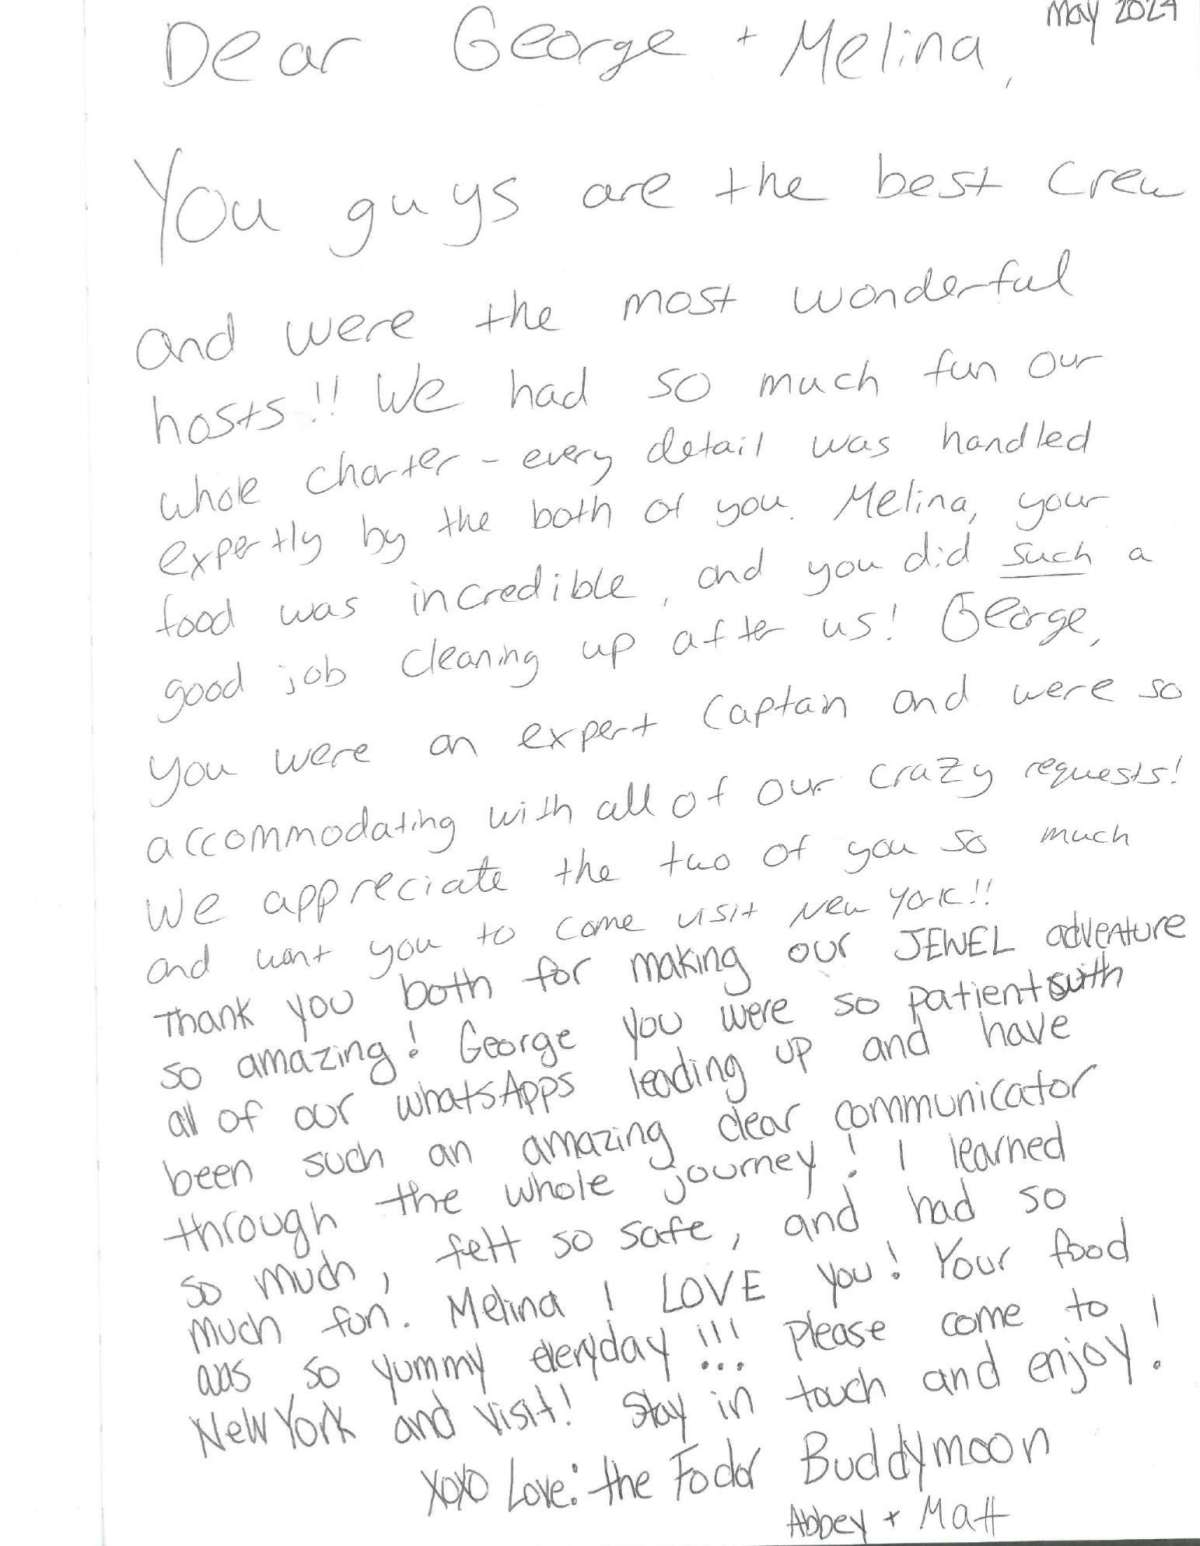 May 2024
Dear George + Melina,
You guys are the best crew
and were the most wonderful
hosts!! We had so much fun our
whole charter - every detail was handled
expertly by the both of you. Melina, your
food was incredible, and you did such a
good job cleaning up after us! George,
you were an expert Captain and were so
accommodating with all of our crazy requests!
We appreciate the two of you so much
and want you to come visit New York!!
Thank you both for making our JEWEL adventure
so amazing! George you were so patient with
all of our whatsApps leading up and have
been such an amazing clear communicator
through the whole journey! I learned
so much, felt so safe, and had so
much fun. Melina I LOVE you! Your food
was so yummy everyday!!! Please come to
New York and visit! Stay in touch and enjoy!
XOXO Love: the Fodor Buddymoon
Abbey + Matt